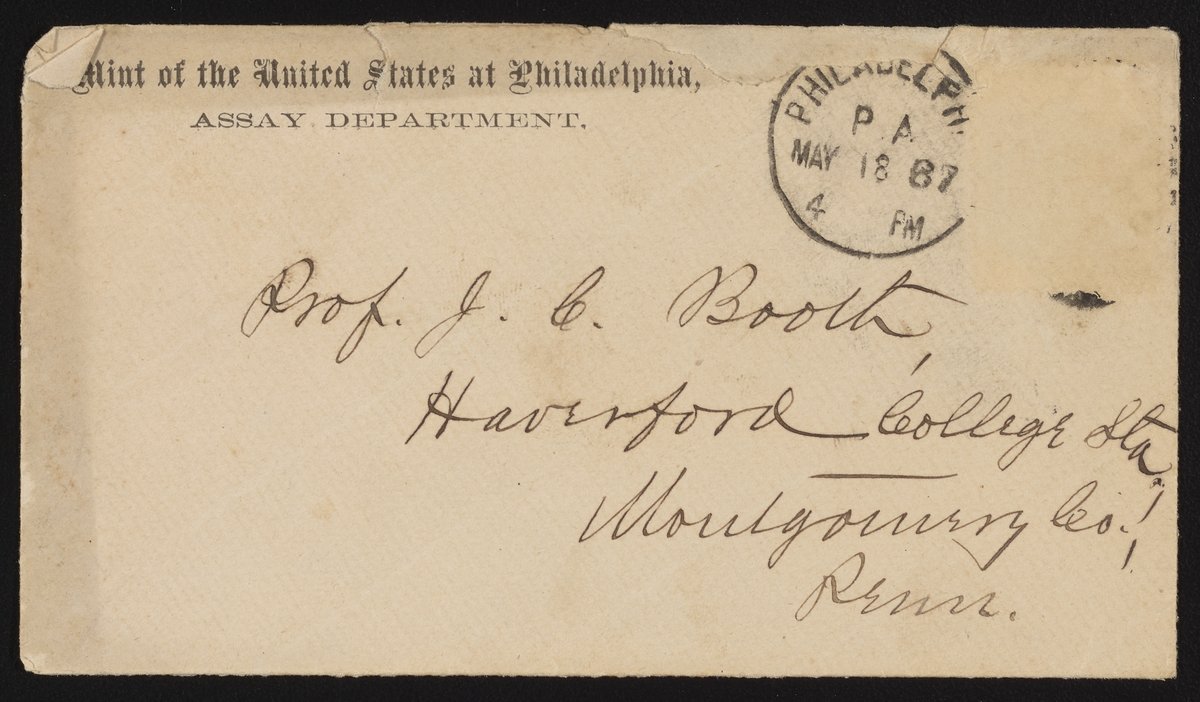 Mint of the United States at Philadelphia,
ASSAY DEPARTMENT,
PHILADELPH
P A
MAY 18 87
4 PM
Prof. J. C. Booth,
Haverford College Sta.,
Montgomery Co.,
Penn.